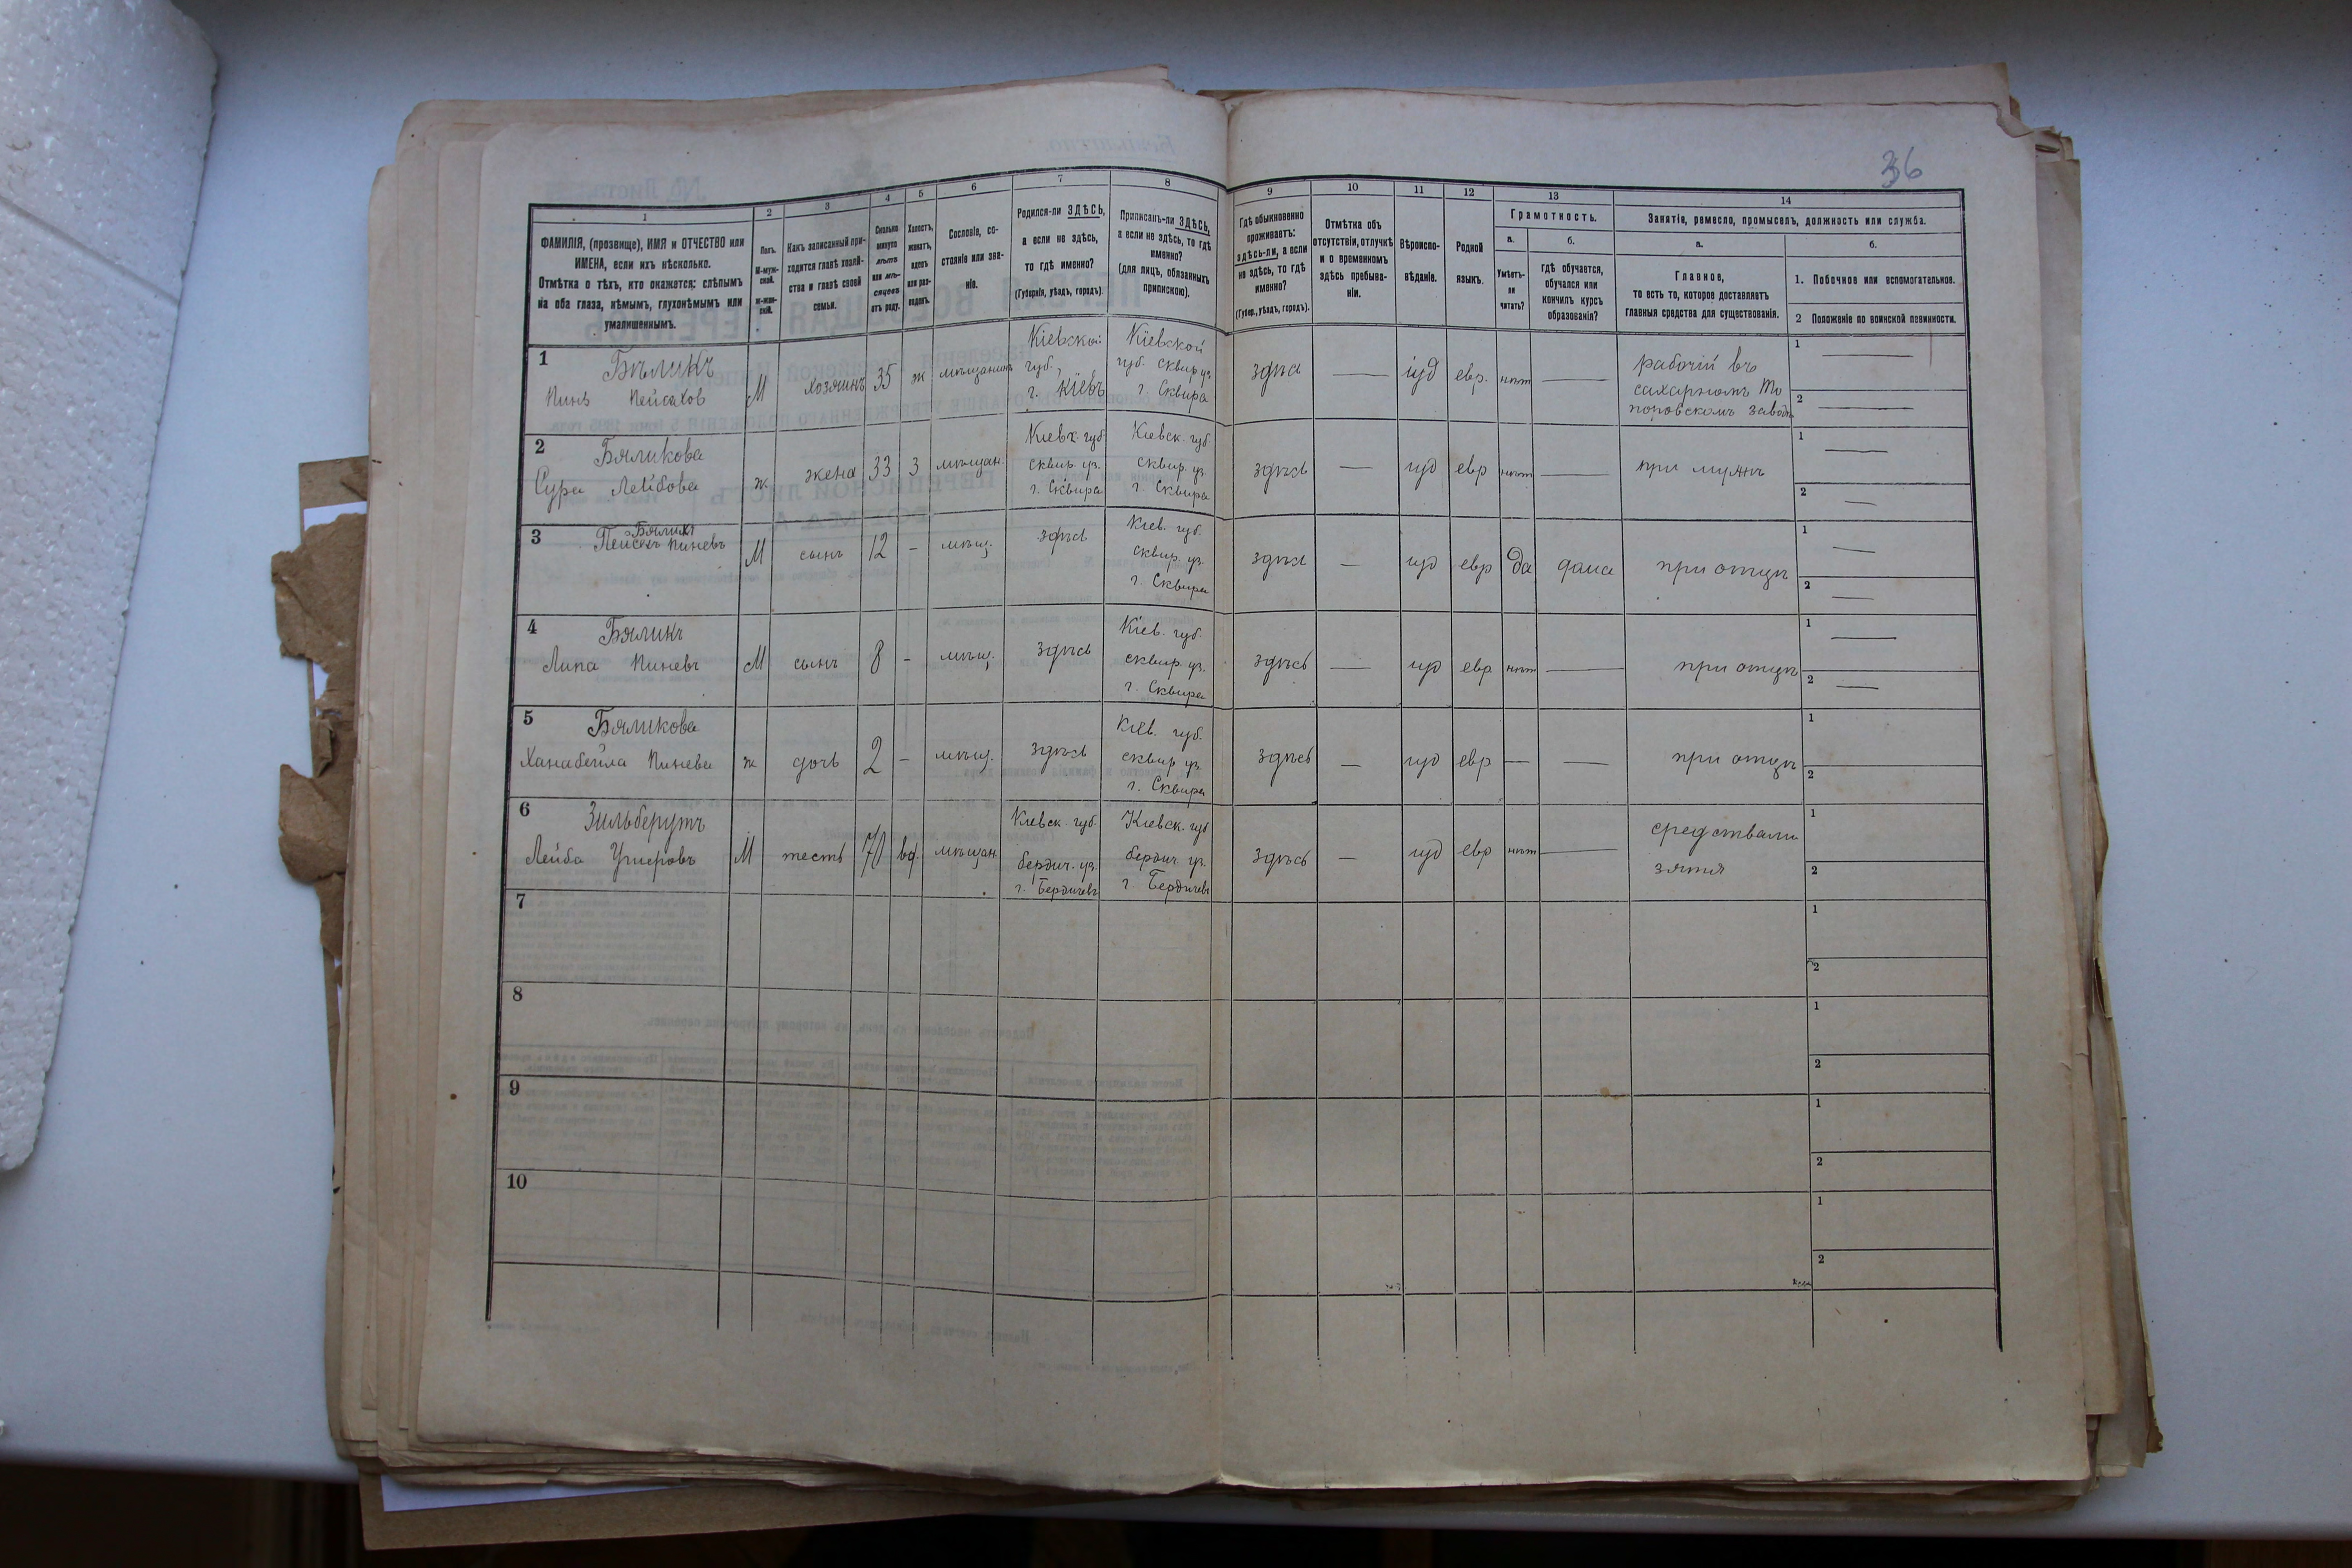 36
1
2
3
4
5
6
7
8
9
10
11
12
13
14
ФАМИЛІЯ, (прозвище), ИМЯ и ОТЧЕСТВО или
ИМЕНА, если ихъ нѣсколько.
Отмѣтка о тѣхъ, кто окажется: слѣпымъ
на оба глаза, нѣмымъ, глухонѣмымъ или
умалишеннымъ.
Полъ.
М-муж-
ской.
ж-жен-
скій.
Какъ записанный при-
ходится главѣ хозяй-
ства и главѣ своей
семьи.
Сколько
минуло
лѣтъ
или мѣ-
сяцевъ
отъ роду.
Холостъ,
женатъ,
вдовъ
или раз-
веденъ.
Сословіе, со-
стояніе или зва-
ніе.
Родился-ли ЗДѢСЬ,
а если не здѣсь,
то гдѣ именно?
(Губернія, уѣздъ, городъ).
Приписанъ-ли ЗДѢСЬ,
а если не здѣсь, то гдѣ
именно?
(для лицъ, обязанныхъ
припискою).
Гдѣ обыкновенно
проживаетъ:
здѣсь-ли, а если
не здѣсь, то гдѣ
именно?
(Губер., уѣздъ, городъ).
Отмѣтка объ
отсутствіи, отлучкѣ
и о временномъ
здѣсь пребыва-
ніи.
Вѣроиспо-
вѣданіе.
Родной
языкъ.
Грамотность.
а.
Умѣетъ-
ли
читать?
б.
гдѣ обучается,
обучался или
кончилъ курсъ
образованія?
Занятіе, ремесло, промыселъ, должность или служба.
а.
Главное,
то есть то, которое доставляетъ
главныя средства для существованія.
б.
1. Побочное или вспомогательное.
2 Положеніе по воинской повинности.
1
Бѣликъ
Пинь Пейсахов
М
хозяинъ
35
ж
мѣщанинъ
Кіевской
губ.,
г. Кіевъ
Кіевской
губ. сквир уз
г. Сквира
здѣсь
іуд
евр.
нѣт
рабочій въ
сахарномъ То
поровскомъ заводѣ
1
2
2
Бяликова
Сура Лейбова
ж
жена
33
З
мѣщан.
Кіевск. губ.
сквир. уз.
г. Сквира
Кіевск. губ.
сквир. уз.
г. Сквира
здѣсь
іуд
евр
нѣт
при мужѣ
1
2
3
Бяликъ
Пейсахъ Пиневъ
М
сынъ
12
-
мѣщ.
здѣсь
Кіев. губ.
сквир. уз.
г. Сквира
здѣсь
іуд
евр
да
дома
при отцѣ
1
2
4
Бяликъ
Липа Пиневъ
М
сынъ
8
-
мѣщ.
здѣсь
Кіев. губ.
сквир. уз.
г. Сквира
здѣсь
іуд
евр
нѣт
при отцѣ
1
2
5
Бяликова
Ханабейла Пинева
ж
дочь
2
-
мѣщ.
здѣсь
Кіев. губ.
сквир уз.
г. Сквира
здѣсь
іуд
евр
при отцѣ
1
2
6
Зильберутъ
Лейба Ушеровъ
М
тесть
70
вд.
мѣщан.
Кіевск. губ.
бердич. уз.
г. Бердичевъ
Кіевск. губ
бердич уз.
г. Бердичевъ
здѣсь
іуд
евр
нѣт
средствами
зятя
1
2
7
1
2
8
1
2
9
1
2
10
1
2